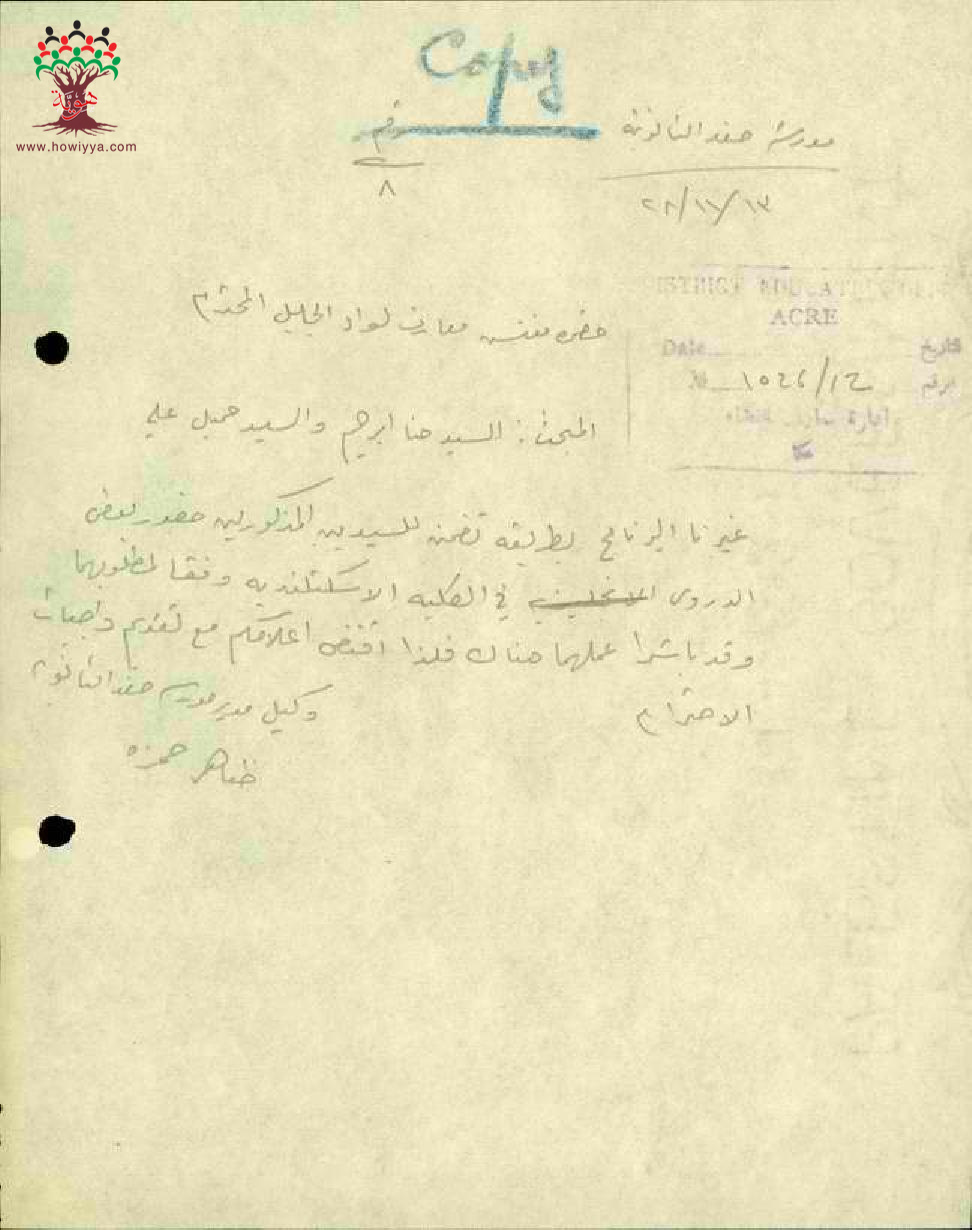 Copy
هوية
www.howiyya.com
مدرسة صفد الثانوية
رقم
٨
DISTRICT EDUCATION
ACRE
Date
تاريخ
№ ١٥٢٤/١٢ برقم
عكا
حضرة مفتش معارف لواء الجليل المحترم
المبحث: السيد حنا ابرهيم والسيد جميل علي
غيرنا البرنامج بطريقه تضمن للسيدين المذكورين حضور بعض
الدروس الانجليزيه في الكليه الاسكتلنديه وفقا لمطلوبهما
وقد باشرا عملهما هناك فلذا اقتضى اعلامكم مع تقديم واجبات
الاحترام
وكيل مدير مدرسة صفد الثانوية
ظاهر حمزه